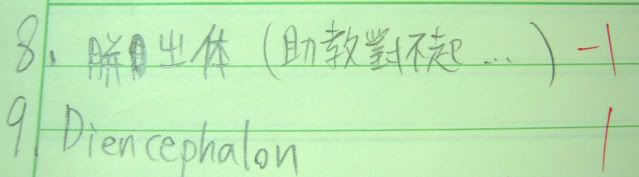 8. 腁出体 (助教對不起...) -1
9. Diencephalon 1